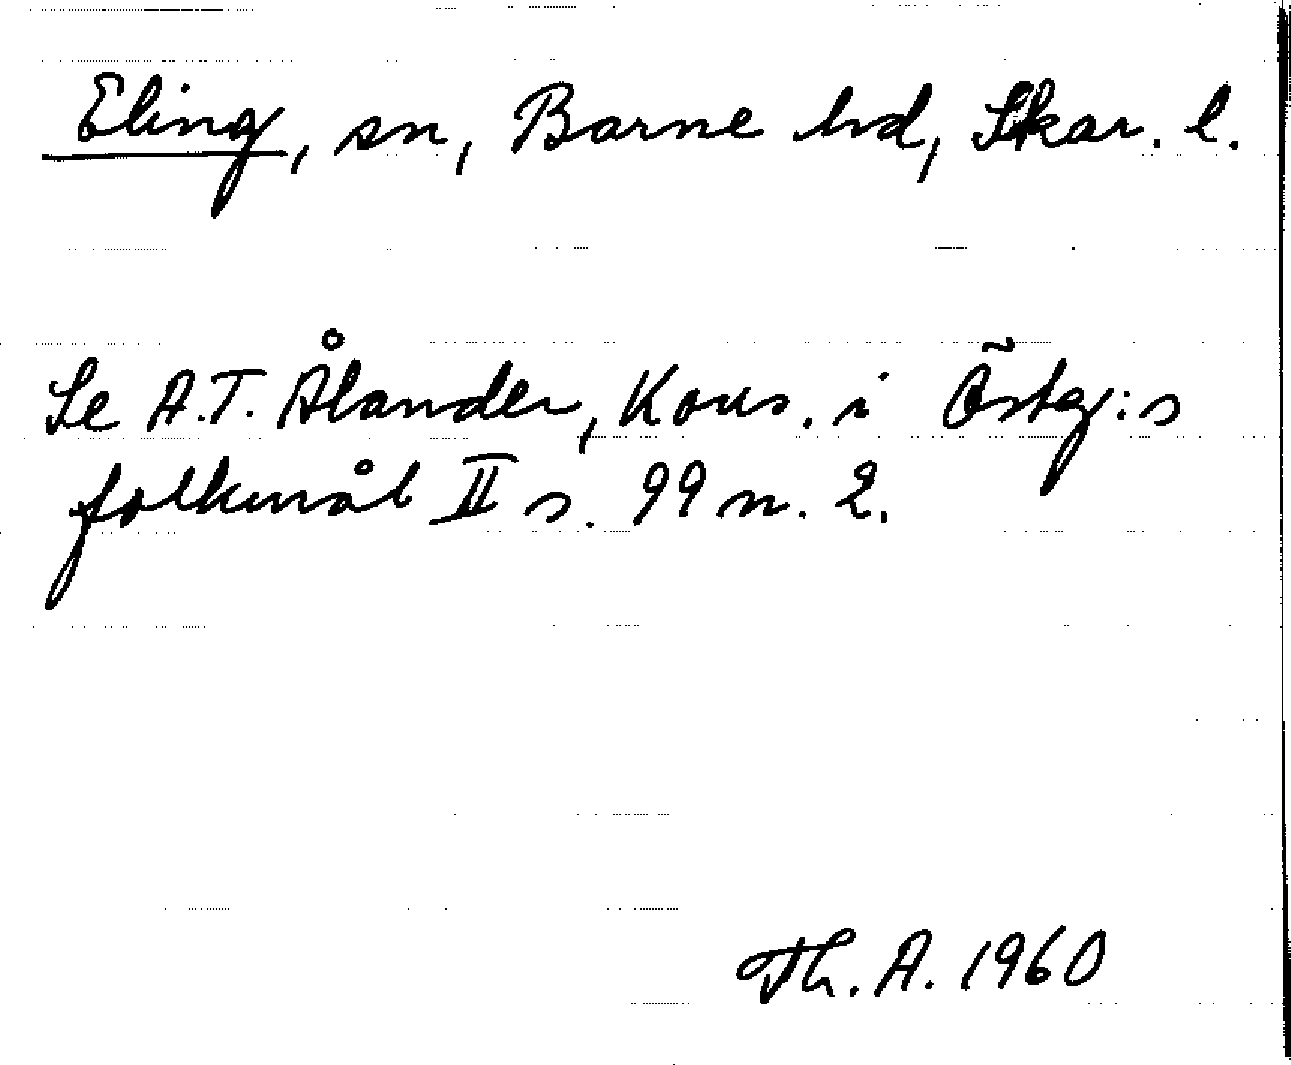 Eling, sn, Barne hd, Skar. l.
Se A.T. Ålander, Kons. i Östg:s
folkmål II s. 99 n. 2.
Th. A. 1960